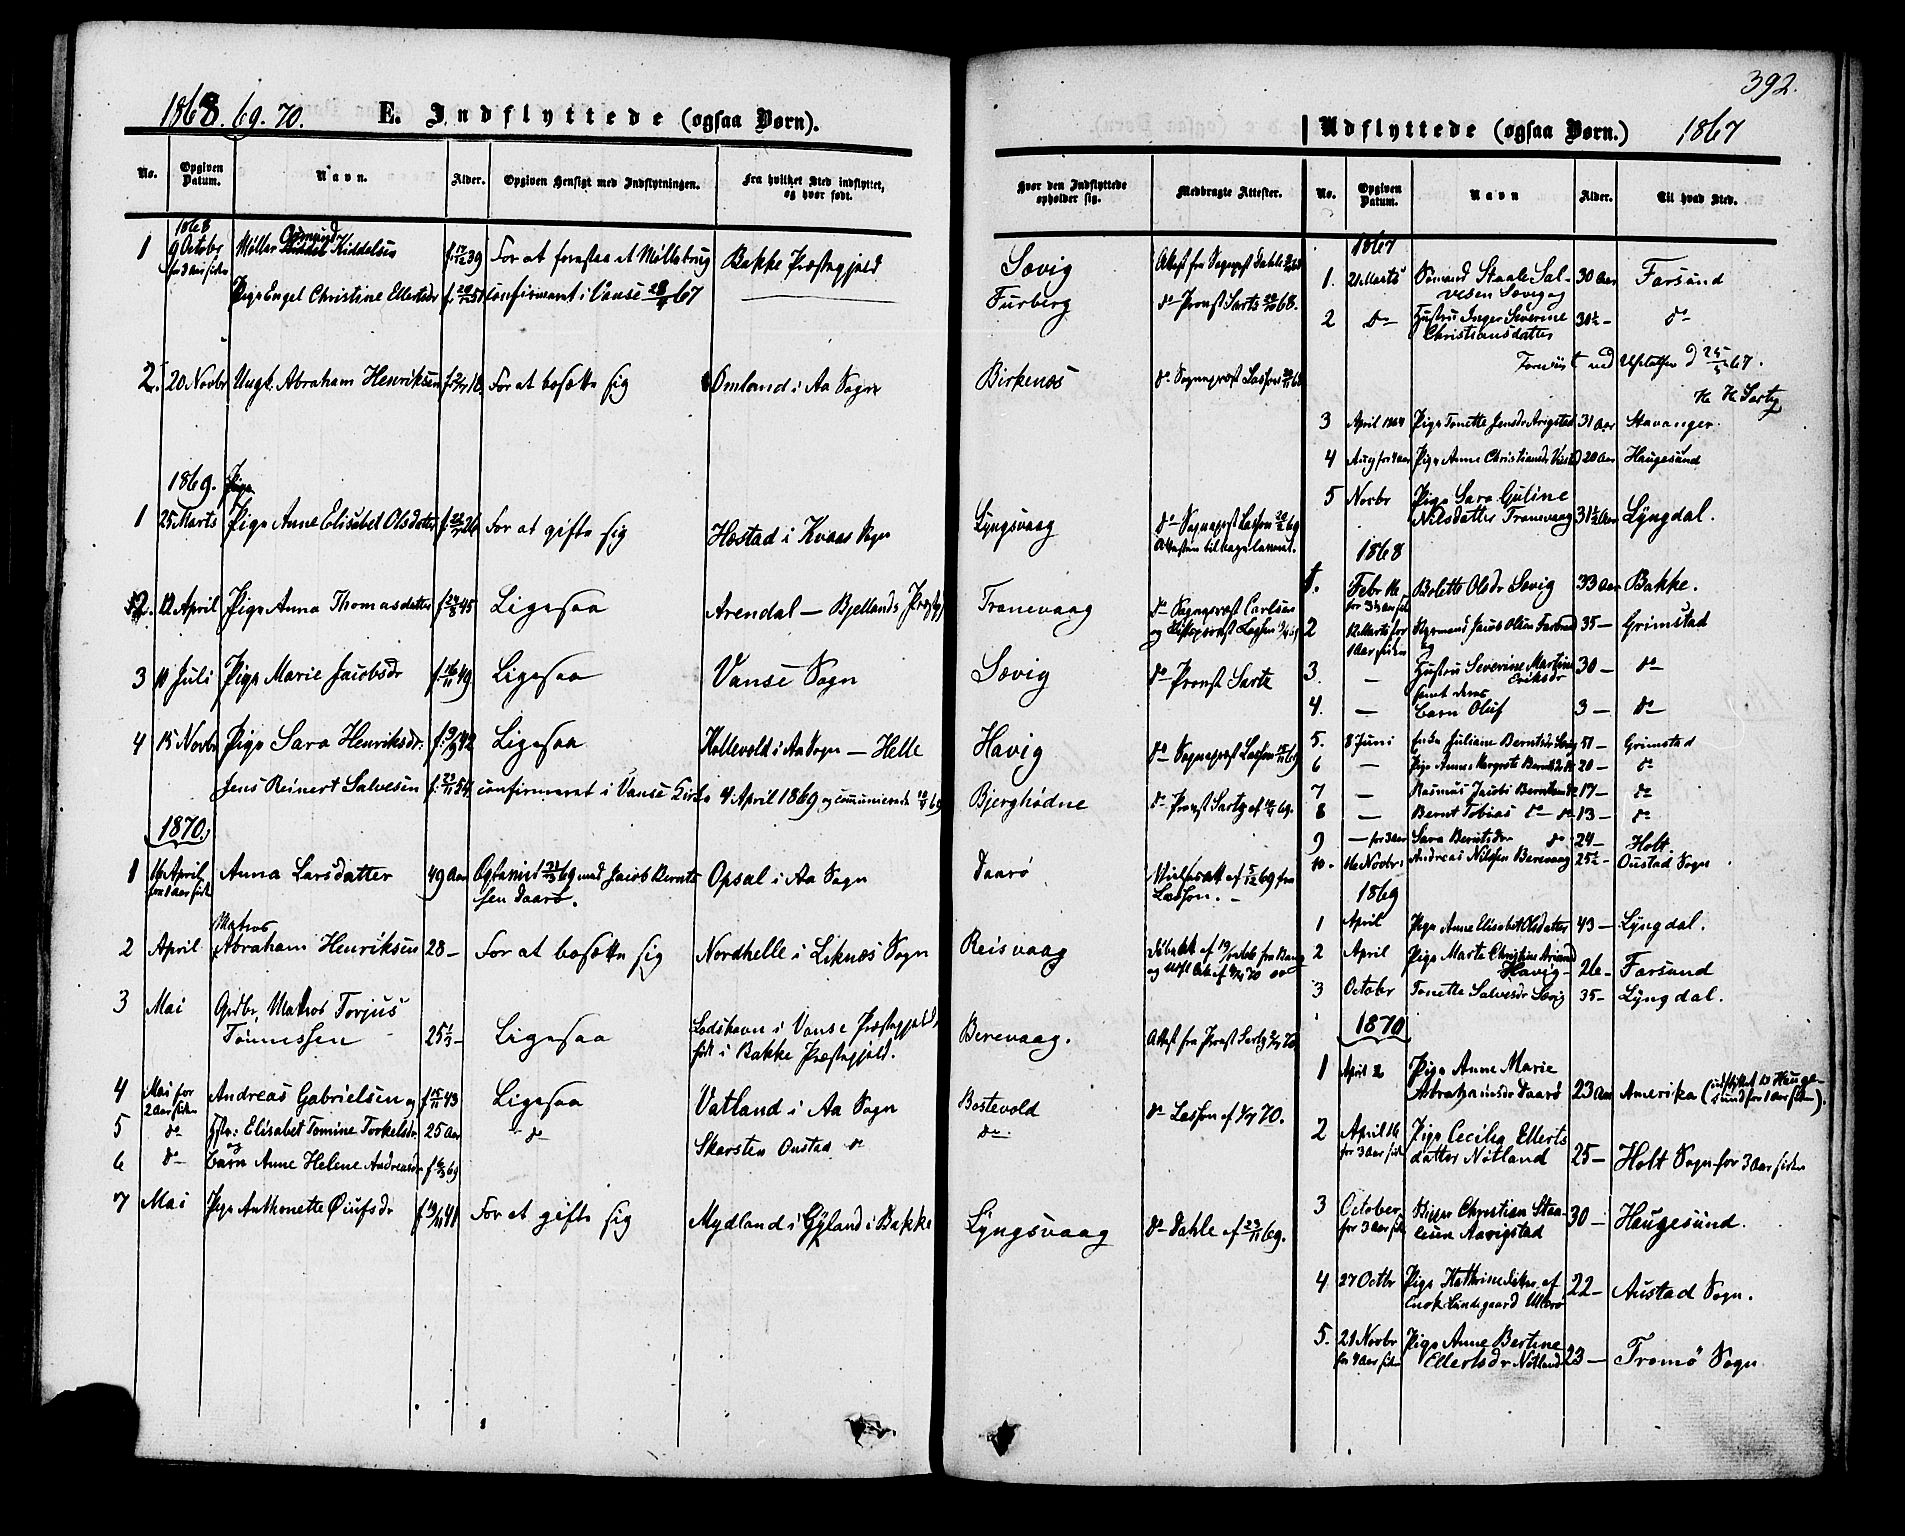 392.
1868. 69. 70. E. Indflyttede (ogsaa Børn).
No. Opgiven Datum. Navn. Alder. Opgiven Hensigt med Indflytningen. Fra hvilket Sted indflyttet, og hvor født. Hvor den Indflyttede opholder sig. Medbragte Attester.
1868
1 9 October for 3 Aar siden Møller Osmund Kiddelsen f. 17/12 39 For at forestaa et Møllebrug Bakke Præstegjeld Sævig Attest fra Sognepr Dahle
Pige Engel Christine Ellertsdr confirmeret i Vanse 67 Furberg do Provst Sartz 68.
2. 20 Novbr Ungk. Abraham Henriksen For at bosætte sig Omland i Aa Sogn Birkenæs do Sognepræst Lassen
1869.
1 25 Marts Pige Anne Elisabet Olsdatter f. 26 For at gifte sig Hæstad i Kvaas Sogn Lyngsvaag do Sognepræst Lassen 69
Attesten tilbageleveret.
2. 12 April Pige Anna Thomasdatter f. 24/8 45 Ligesaa Arendal — Bjellands Prstgj Tranevaag do Sognepræst Carlsen
3 10 Juli Pige Marie Jacobsdr f. 16/11 49 Ligesaa Vanse Sogn Sævig do Provst Sartz
4 15 Novbr Pige Sara Henriksdr. f. 42 Ligesaa Kollevold i Aa Sogn — Helle Havig do Sognepræst Lassen 69
Jens Reinert Salvesen f. 54 confirmeret i Vanse Kirke 4 April 1869 og communicerede 69 Bjerghødne do Provst Sartz af 69.
1870.
1 16 April for 1 Aar siden Anna Larsdatter 49 Aar Ægteviet 69 med Jacob Berntsen Daarø. Opsal i Aa Sogn Daarø Vielsesatt af 5/12 69 fra Lassen. —
2 April Matros Abraham Henriksen 28 — For at bosætte sig Nordhelle i Liknæs Sogn Reisvaag
3 Mai Grdbr. Matros Torjus Tønnessen 25 1/2 — Ligesaa Lodshavn i Vanse Præstegjeld, født i Bakke Præstegjeld. Berevaag. Attest fra Provst Sartz 70
4 Mai for 2 Aar siden Andreas Gabrielsen og f. 15/11 43 Ligesaa Vatland i Aa Sogn Bostevold do Lassen af 70.
5 do Hstr: Elisabet Tomine Torkelsdr 25 Aar do Skarsten Oustad do do
og
6 do Barn Anne Helene Andreasdr f. 69
7 Mai Pige Anthonette Øiufsdr f. 41 For at gifte sig Mydland i Gyland i Bakke Lyngsvaag do Dahle af 23/11 69.
Udflyttede (ogsaa Børn.) 1867
No. Opgiven Datum. Navn Alder. Til hvad Sted.
1867
1. 21 Marts Sømand Staale Salvesen Sævig og 30 Aar Farsund
2 do Hustru Inger Severine Christiansdatter 30 1/2 — do
Foreviist ved 67.
H Sartz
3 April 1864 Pige Tonette Jensdr Arigstad 31 Aar Stavanger.
4 Aug for 4 Aar Pige Anne Christiansdr 20 Aar Haugesund
5 Novbr Pige Sara Guline Nilsdatter Tranevaag 31 1/2 Aar Lyngdal.
1868
1. Febr Bolette Olsdr Sævig 33 Aar Bakke.
2 12 Marts for 1 Aar siden Styrmand Jacob Olsen 35 — Grimstad
og
3. — Hustru Severine Martine Eriksdr 30 — do
samt deres
4. — Barn Oluf 3 — do
5. 8 Juni Enke Juliane Berntsdr Sævig 51 — Grimstad
6 — Pige Anne Margrete 20 — do
7 — Rasmus Jacobi Berntsen 17 — do
8 — Bernt Tobias do 13 — do
9 — for 3 Aar Sara Berntsdr do 24 — Holt
10. 16 Novbr Andreas Nilssen Berevaag 25 1/2 — Oustad Sogn
1869
1 April Pige Anne Elisabet Olsdatter 43 — Lyngdal.
2 April Pige Marte Christine Havig — 26 — Farsund
3 October Tonette Salvesdr Sævig 35 — Lyngdal.
1870
1 April Pige Anne Marie Abrahamsdr Daarø 23 Aar Amerika (indflyttet til Haugesund for 1 Aar siden).
2 April 16 for 3 Aar siden Pige Cecilia Ellertsdatter Nøtland 25 — Holt Sogn for 3 Aar siden
3 October for 3 Aar siden Christian Staalesen Aavigstad 30 — Haugesund.
4 27 Octbr Pige Kathrine Datter af Enok Lindegaard Ullerø 22 — Austad Sogn.
5. 21 Novbr for 4 Aar siden Pige Anne Bertine Ellertsdr Nøtland 23 — Tromø Sogn